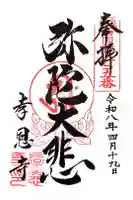 奉拝
令和八年四月十九日
弥陀大悲
孝恩寺